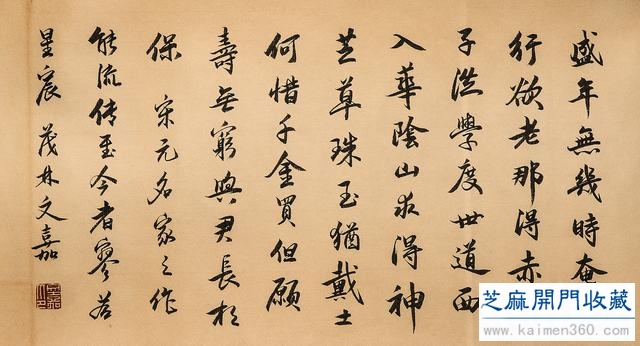 盛年無幾時奄
行欲老那得赤
子從學度世道西
入華陰山求得神
芝草珠玉猶戴土
何惜千金買但願
壽無窮與君長相
保 宋元名家之作
能流传至今者寥若
星宸 茂林文嘉
芝麻開門收藏
www.kaimen360.com